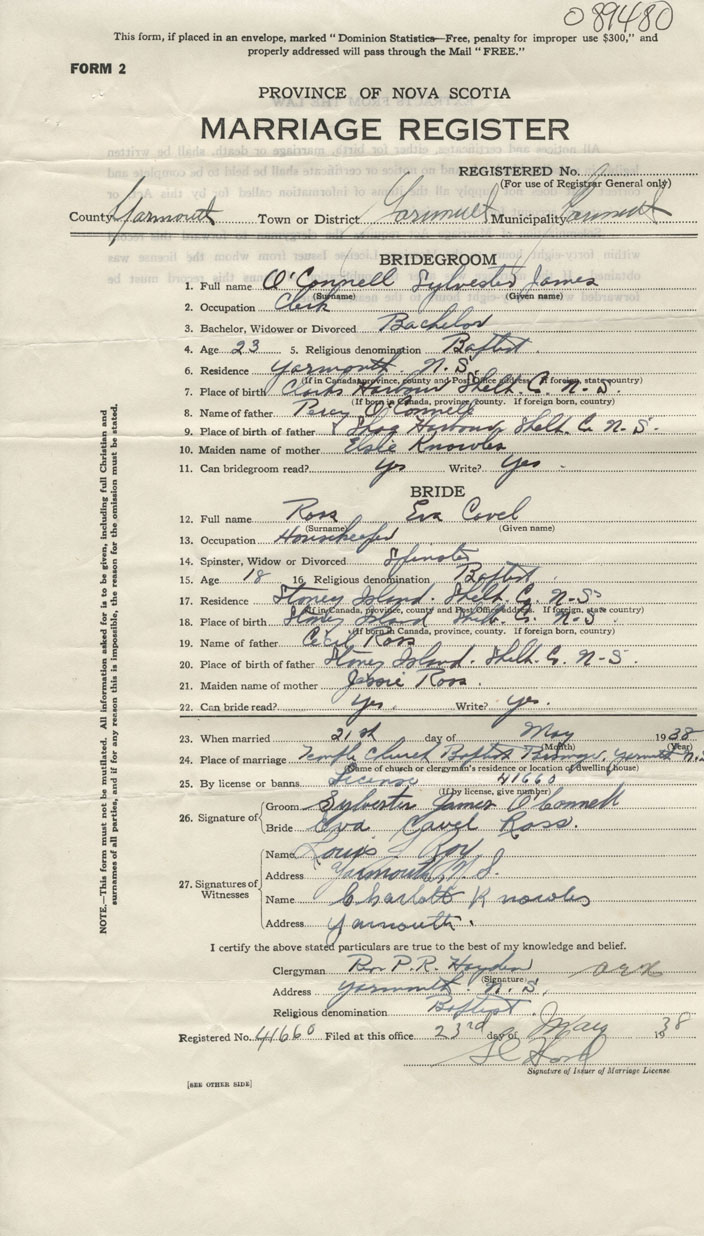 089480
This form, if placed in an envelope, marked "Dominion Statistics—Free, penalty for improper use $300," and
properly addressed will pass through the Mail "FREE."
FORM 2
PROVINCE OF NOVA SCOTIA
MARRIAGE REGISTER
REGISTERED No.
(For use of Registrar General only)
County Yarmouth Town or District Yarmouth Municipality Yarmouth
BRIDEGROOM
1. Full name O'Connell Sylvester James
(Surname) (Given name)
2. Occupation Clerk
3. Bachelor, Widower or Divorced Bachelor
4. Age 23 5. Religious denomination Baptist
6. Residence Yarmouth N.S.
(If in Canada, province, county and Post Office address. If foreign, state country)
7. Place of birth Clarks Harbour Shelb. Co. N-S.
(If born in Canada, province, county. If foreign born, country)
8. Name of father Percy O'Connell
9. Place of birth of father Shag Harbour Shelb. Co. N-S.
10. Maiden name of mother Elsie Knowles
11. Can bridegroom read? Yes Write? Yes.
BRIDE
12. Full name Ross Eva Cavel
(Surname) (Given name)
13. Occupation Housekeeper
14. Spinster, Widow or Divorced Spinster
15. Age 18 16. Religious denomination Baptist.
17. Residence Stoney Island. Shelb. Co. N-S.
(If in Canada, province, county and Post Office address. If foreign, state country)
18. Place of birth Stoney Island Shelb. Co. N-S.
(If born in Canada, province, county. If foreign born, country)
19. Name of father Cecil Ross
20. Place of birth of father Stoney Island. Shelb. Co. N-S.
21. Maiden name of mother Jessie Ross.
22. Can bride read? Yes. Write? Yes.
23. When married 21st day of May 1938
(Month) (Year)
24. Place of marriage Temple Church Baptist Yarmouth N.S
(Name of church or clergyman's residence or location of dwelling house)
25. By license or banns License 41660
(If by license, give number)
26. Signature of Groom Sylvester James O'Connell
Bride Eva Cavel Ross.
27. Signatures of Witnesses
Name Roy
Address Yarmouth, N.S.
Name Charlotte Knowles
Address Yarmouth.
I certify the above stated particulars are true to the best of my knowledge and belief.
Clergyman Rev P.R. Hayden
(Signature)
Address Yarmouth. N.S.
Religious denomination Baptist.
Registered No. 41660 Filed at this office 23rd day of May 1938
Signature of Issuer of Marriage License
[SEE OTHER SIDE]
NOTE.—This form must not be mutilated. All information asked for is to be given, including full Christian and
surnames of all parties, and if for any reason this is impossible, the reason for the omission must be stated.